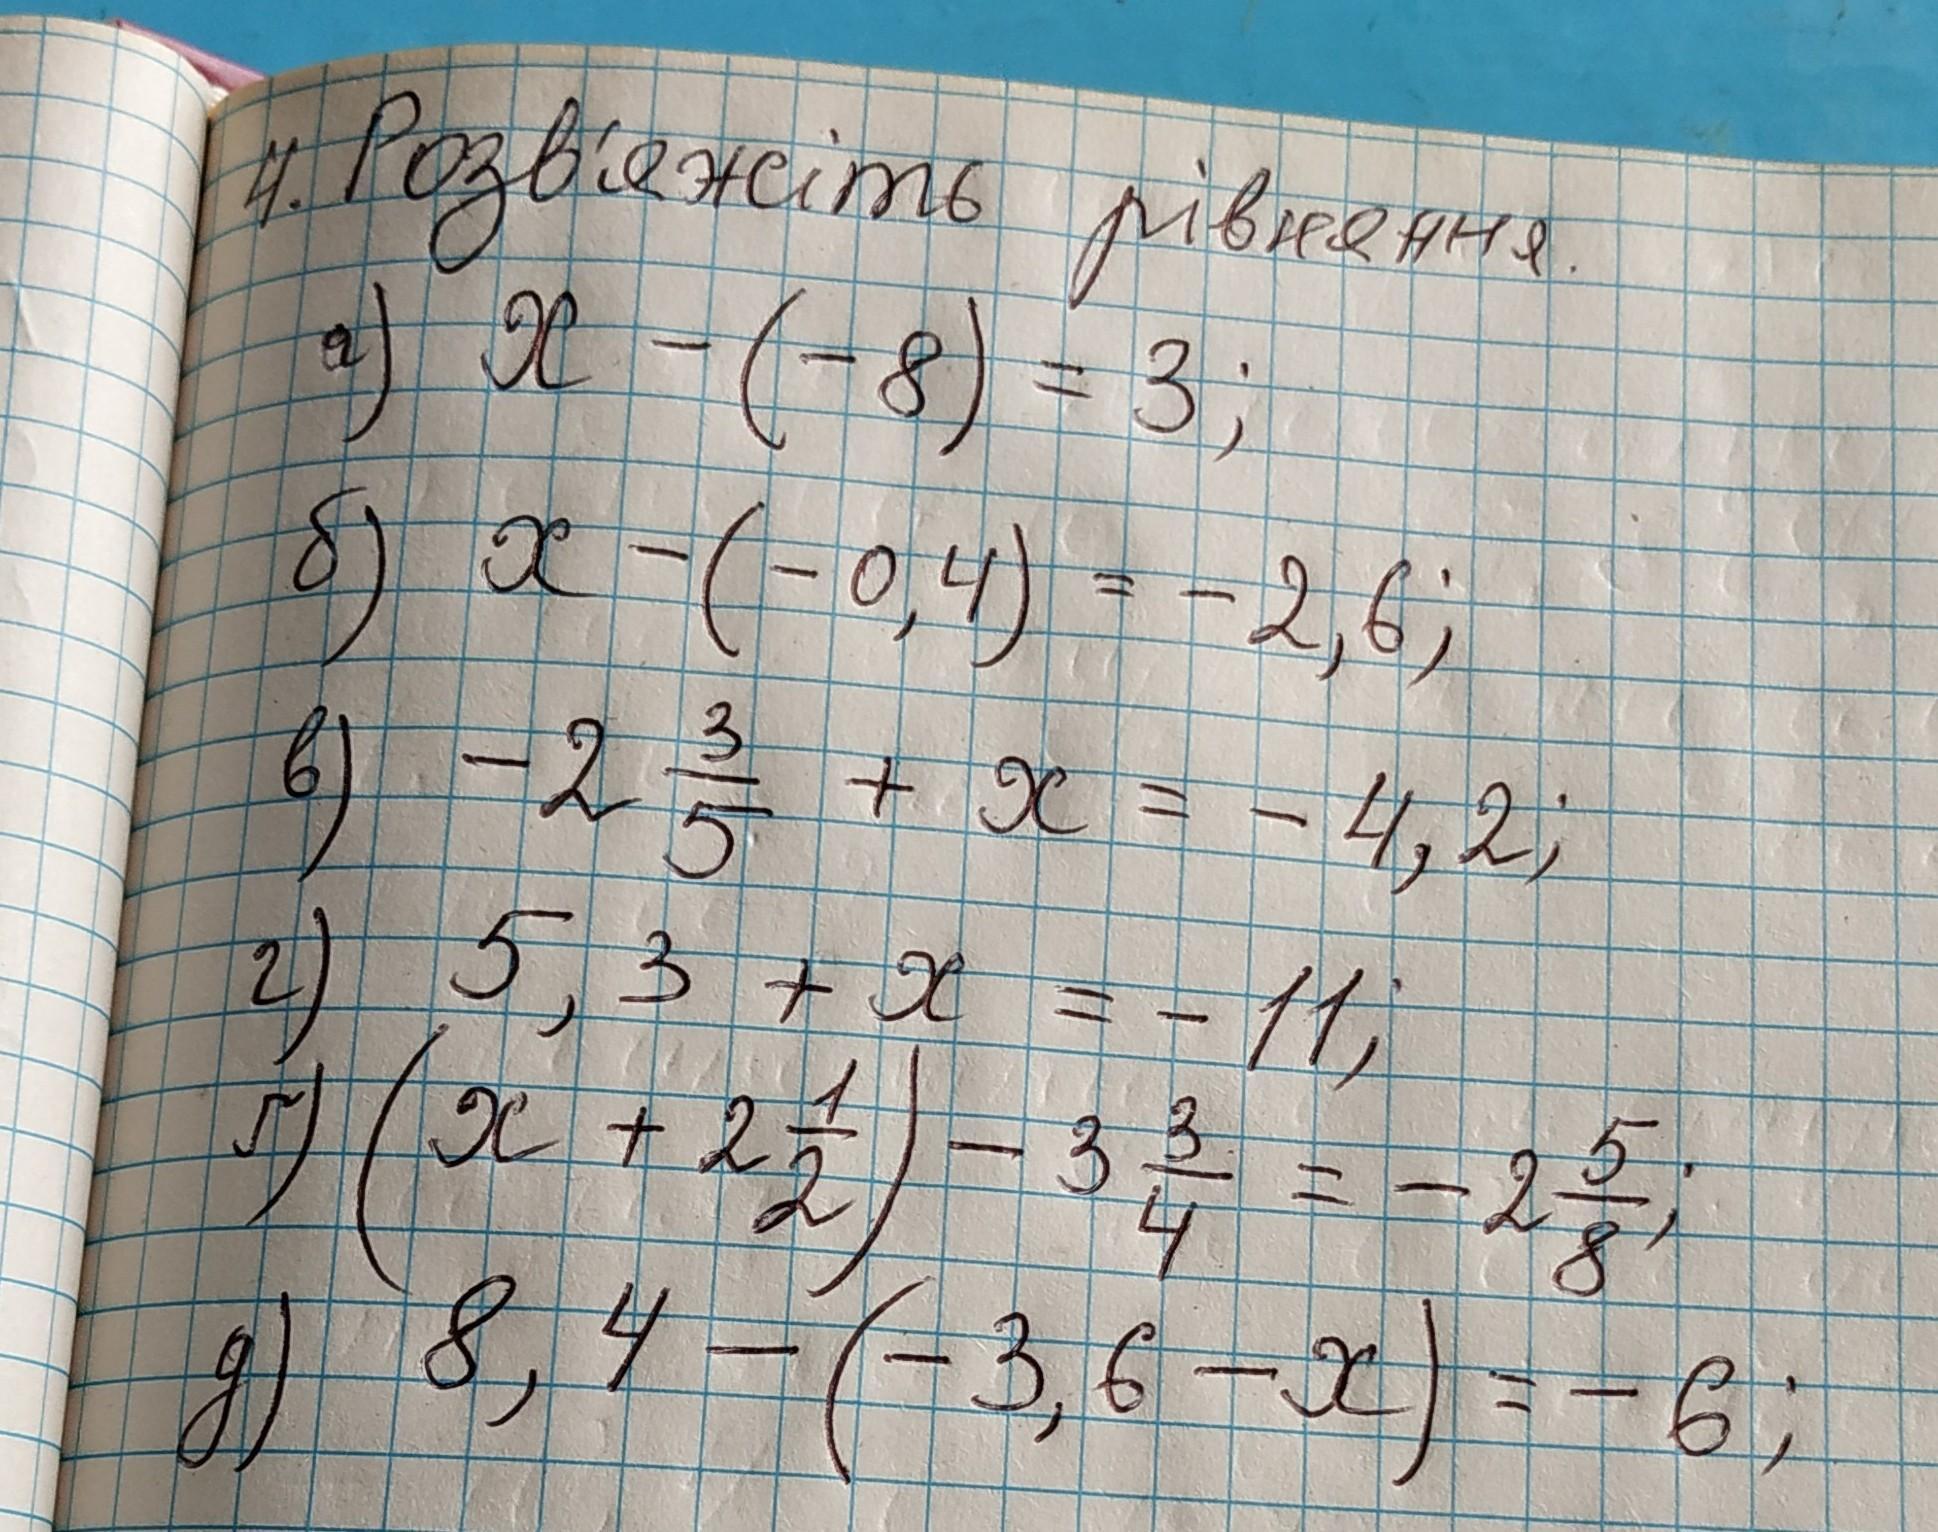 4. Розв'яжіть рівняння.
а) x - (-8) = 3;
б) x - (-0,4) = -2,6;
в) -2 3/5 + x = -4,2;
г) 5,3 + x = -11;
ґ) (x + 2 1/2) - 3 3/4 = -2 5/8;
д) 8,4 - (-3,6 - x) = -6;